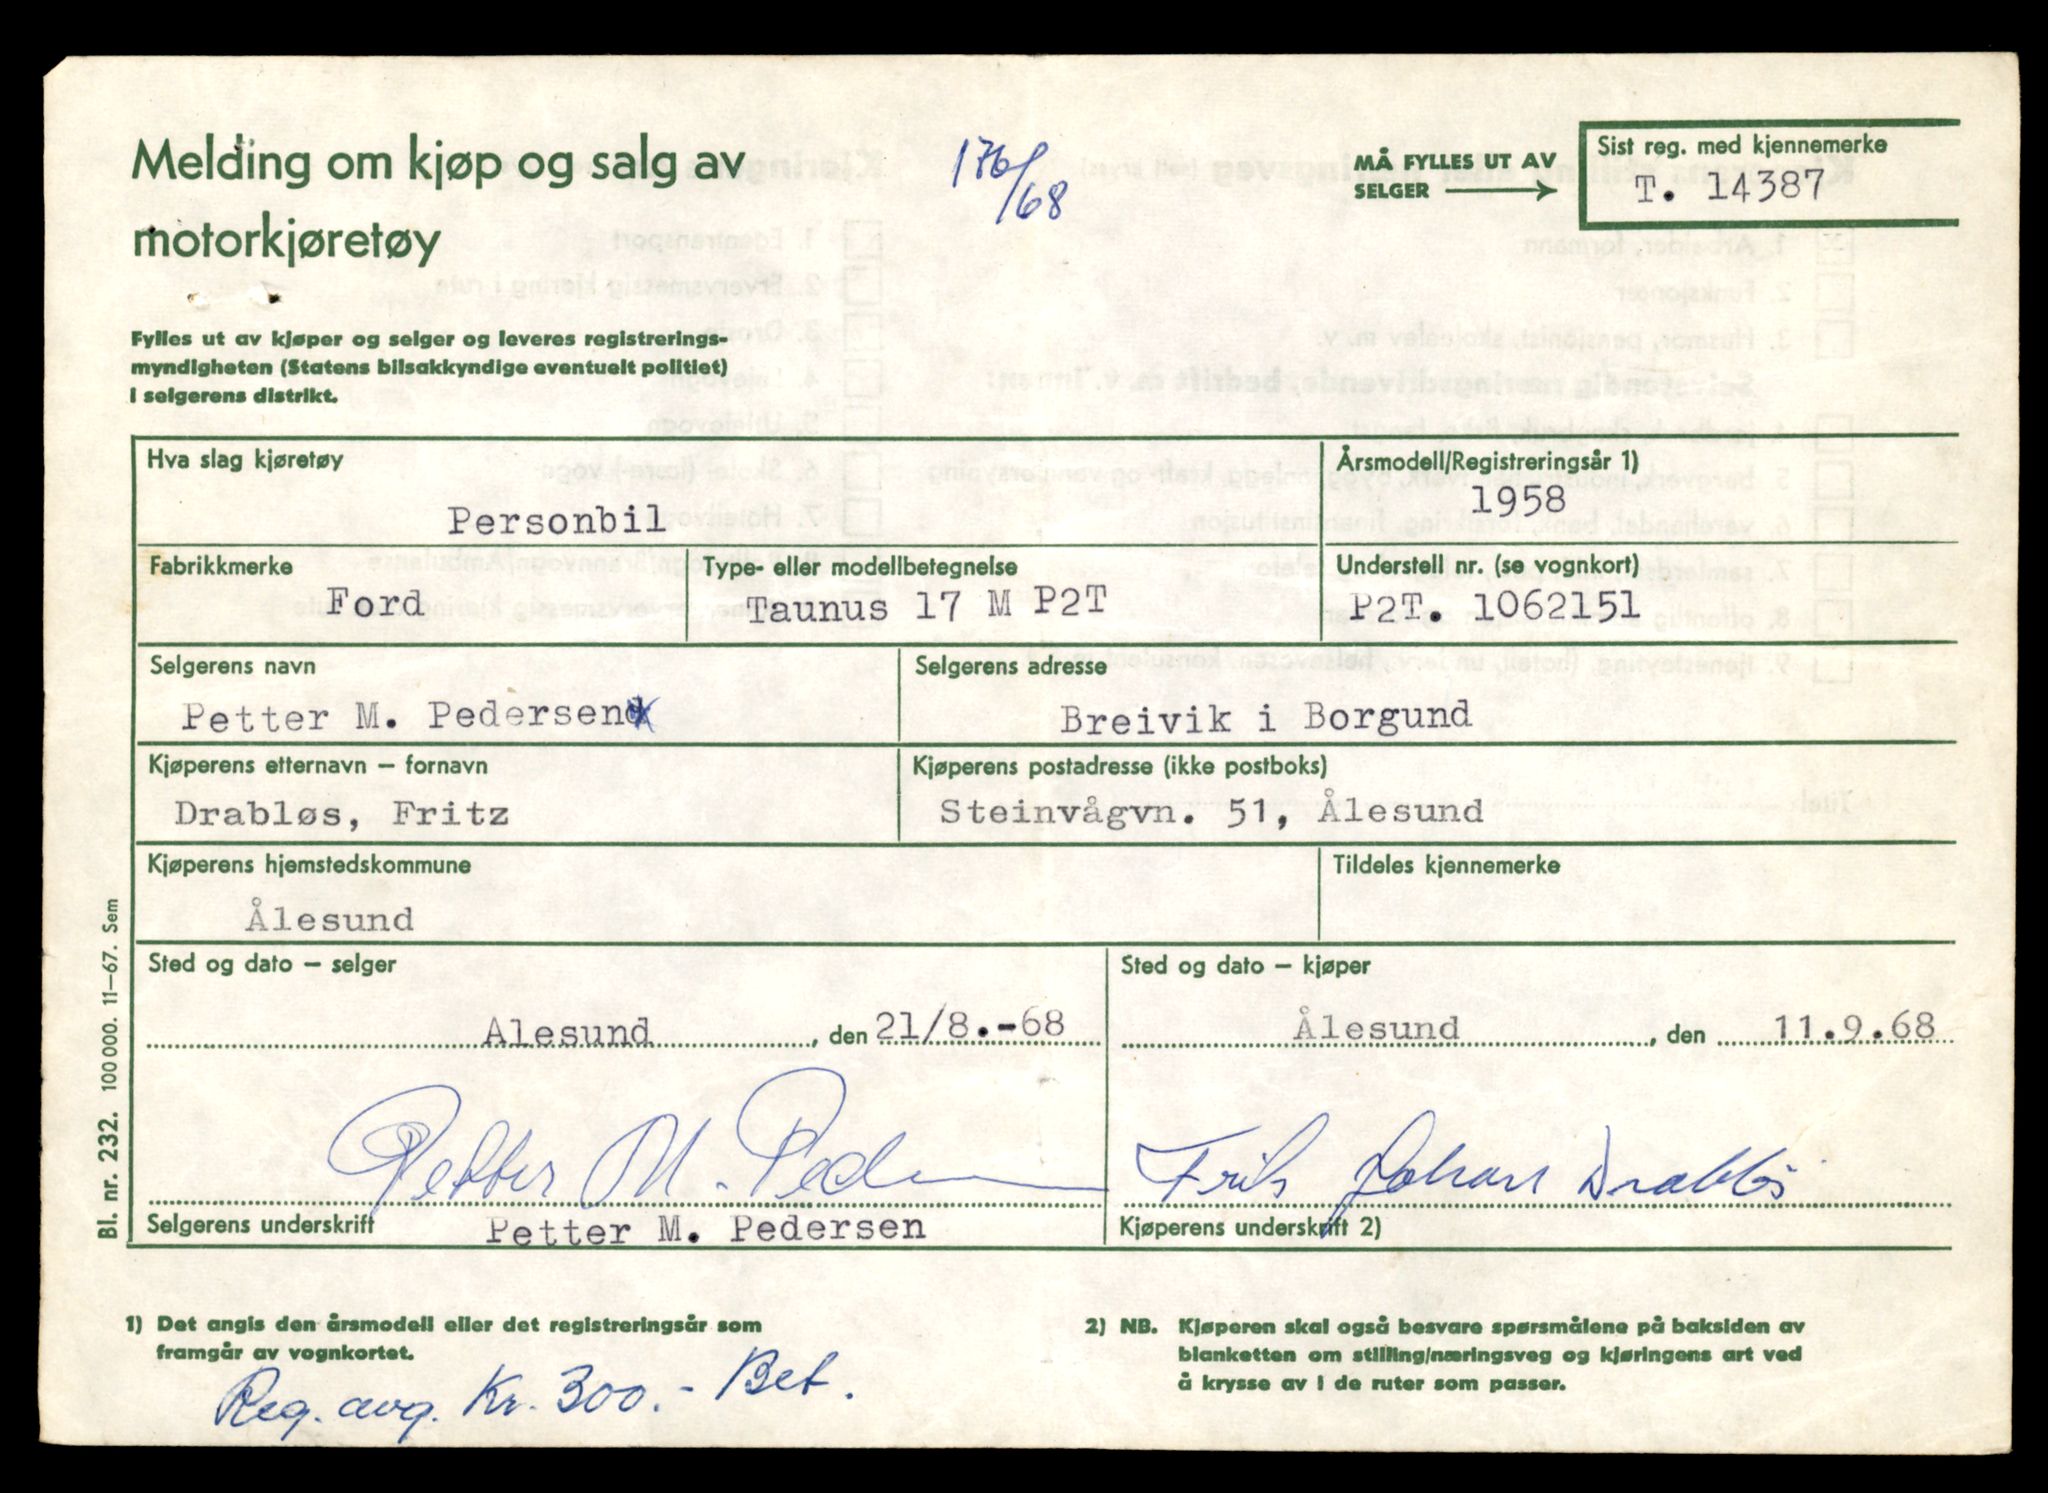 Melding om kjøp og salg av
motorkjøretøy
176/68
MÅ FYLLES UT AV
SELGER
Sist reg. med kjennemerke
T. 14387
Fylles ut av kjøper og selger og leveres registrerings-
myndigheten (Statens bilsakkyndige eventuelt politiet)
i selgerens distrikt.
Hva slag kjøretøy
Personbil
Årsmodell/Registreringsår 1)
1958
Fabrikkmerke
Ford
Type- eller modellbetegnelse
Taunus 17 M P2T
Understell nr. (se vognkort)
P2T. 1062151
Selgerens navn
Petter M. Pedersen
Selgerens adresse
Breivik i Borgund
Kjøperens etternavn – fornavn
Drabløs, Fritz
Kjøperens postadresse (ikke postboks)
Steinvågvn. 51, Ålesund
Kjøperens hjemstedskommune
Ålesund
Tildeles kjennemerke
Sted og dato – selger
Alesund, den 21/8.-68
Sted og dato – kjøper
Ålesund, den 11.9.68
Petter M. Pedersen
Selgerens underskrift
Petter M. Pedersen
Frits Johan Drabløs
Kjøperens underskrift 2)
Bl. nr. 232. 100 000. 11–67. Sem
1) Det angis den årsmodell eller det registreringsår som
framgår av vognkortet.
2) NB. Kjøperen skal også besvare spørsmålene på baksiden av
blanketten om stilling/næringsveg og kjøringens art ved
å krysse av i de ruter som passer.
Reg. avg. Kr. 300.- Bet.